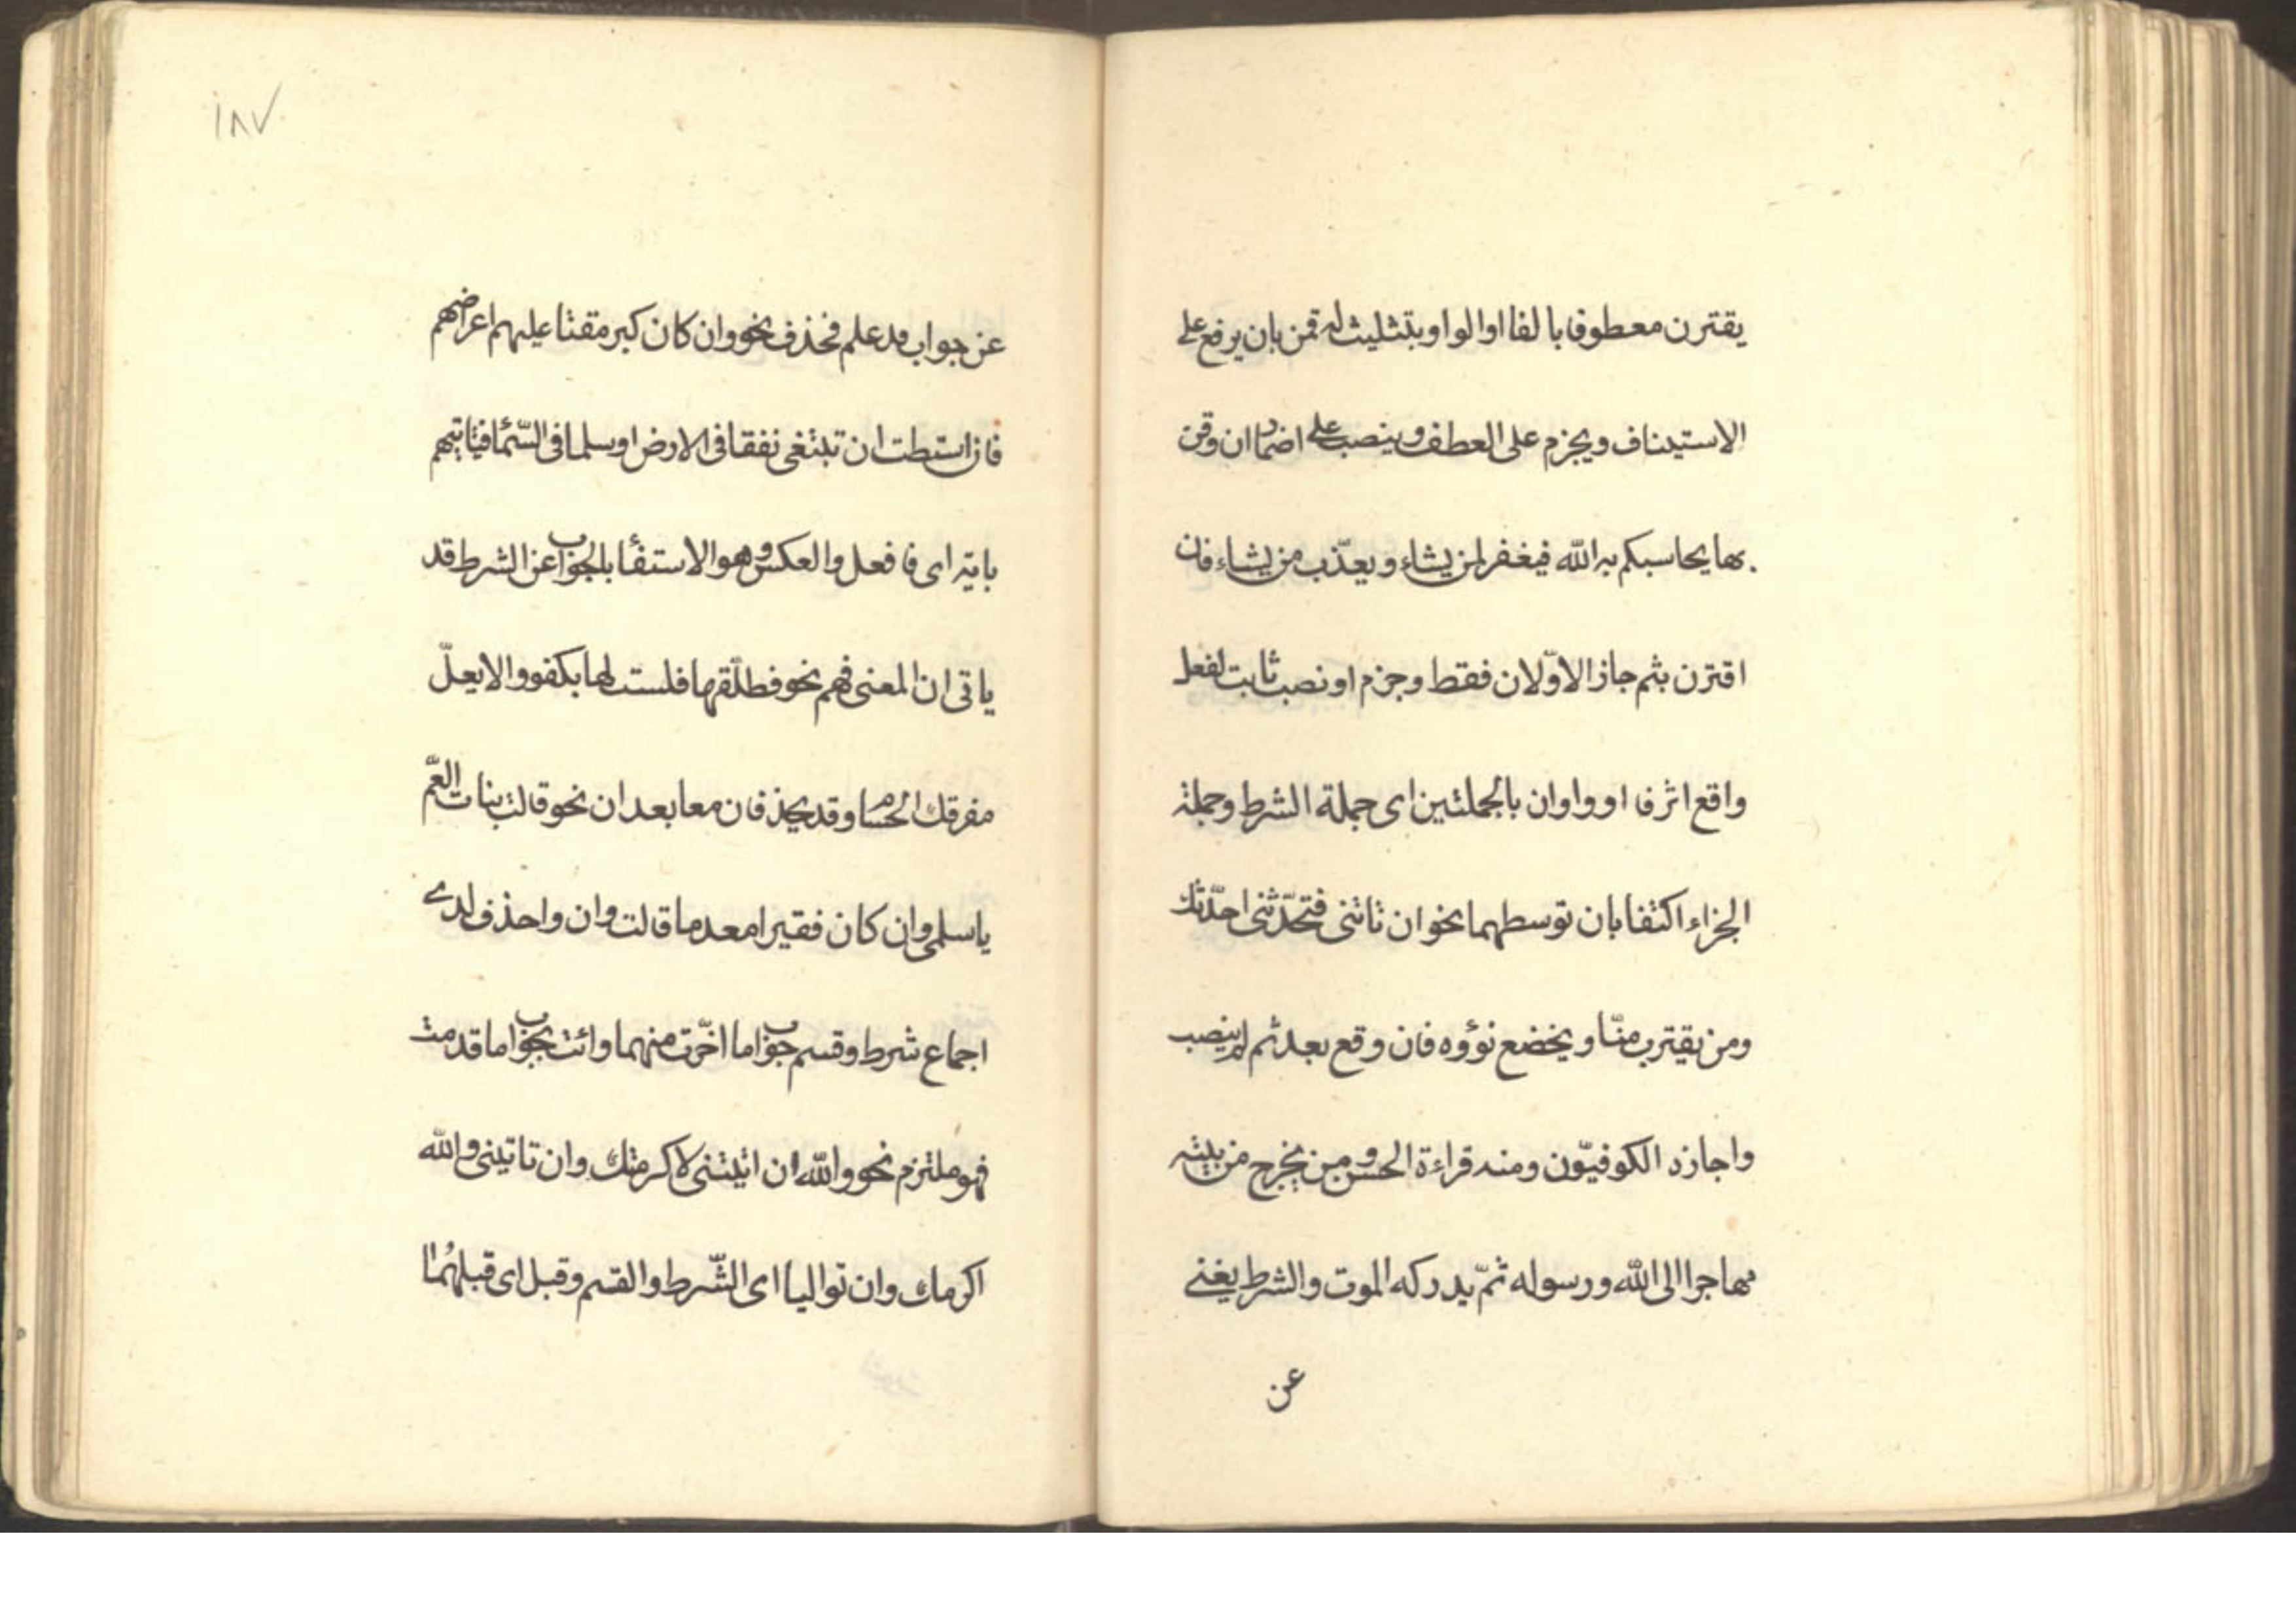 يقترن معطوفا بالفا او الواو بتثليث له قمن بان يرفع على
الاستيناف ويجزم على العطف وينصب على اضمار ان وقرئ
بها يحاسبكم به الله فيغفر لمن يشاء ويعذّب من يشاء فان
اقترن بثم جاز الاوّلان فقط وجزم او نصب ثابت لفعل
واقع اثر فا او واو ان بالجملتين اى جملة الشرط وجملة
الجزاء اكتفا بان توسطهما نحو ان تاتنى فتحدّثنى احدّثك
ومن يقترب منّا ويخضع نؤوه فان وقع بعد ثم لم ينصب
واجازه الكوفيّون ومنه قراءة الحسن ومن يخرج من بيته
مهاجرا الى الله ورسوله ثمّ يدركه الموت والشرط يغنى
عن
١٨٧
عن جواب قد علم فحذف نحو وان كان كبر مقتا عليهم اعراضهم
فان استطت ان تبتغى نفقا فى الارض او سلما فى السّمٓا فتاتيهم
باية اى فافعل والعكس وهو الاستغنٓا بالجواب عن الشرط قد
ياتى ان المعنى فهم نحو فطلّقها فلست لها بكفو والا يعلّ
مفرقك الحسام وقد يحذفان معا بعد ان نحو قالت بنات العّم
يا سلمى وان كان فقيرا معدما قالت وان واحذف لدى
اجماع شرط وقسم جواب ما اخّرت منهما وائت بجواب ما قدمت
فهو ملتزم نحو والله ان اتيتنى لاكرمتك وان تاتينى والله
اكرمك وان تواليا اى الشّرط والقسم وقبل اى قبلهُما